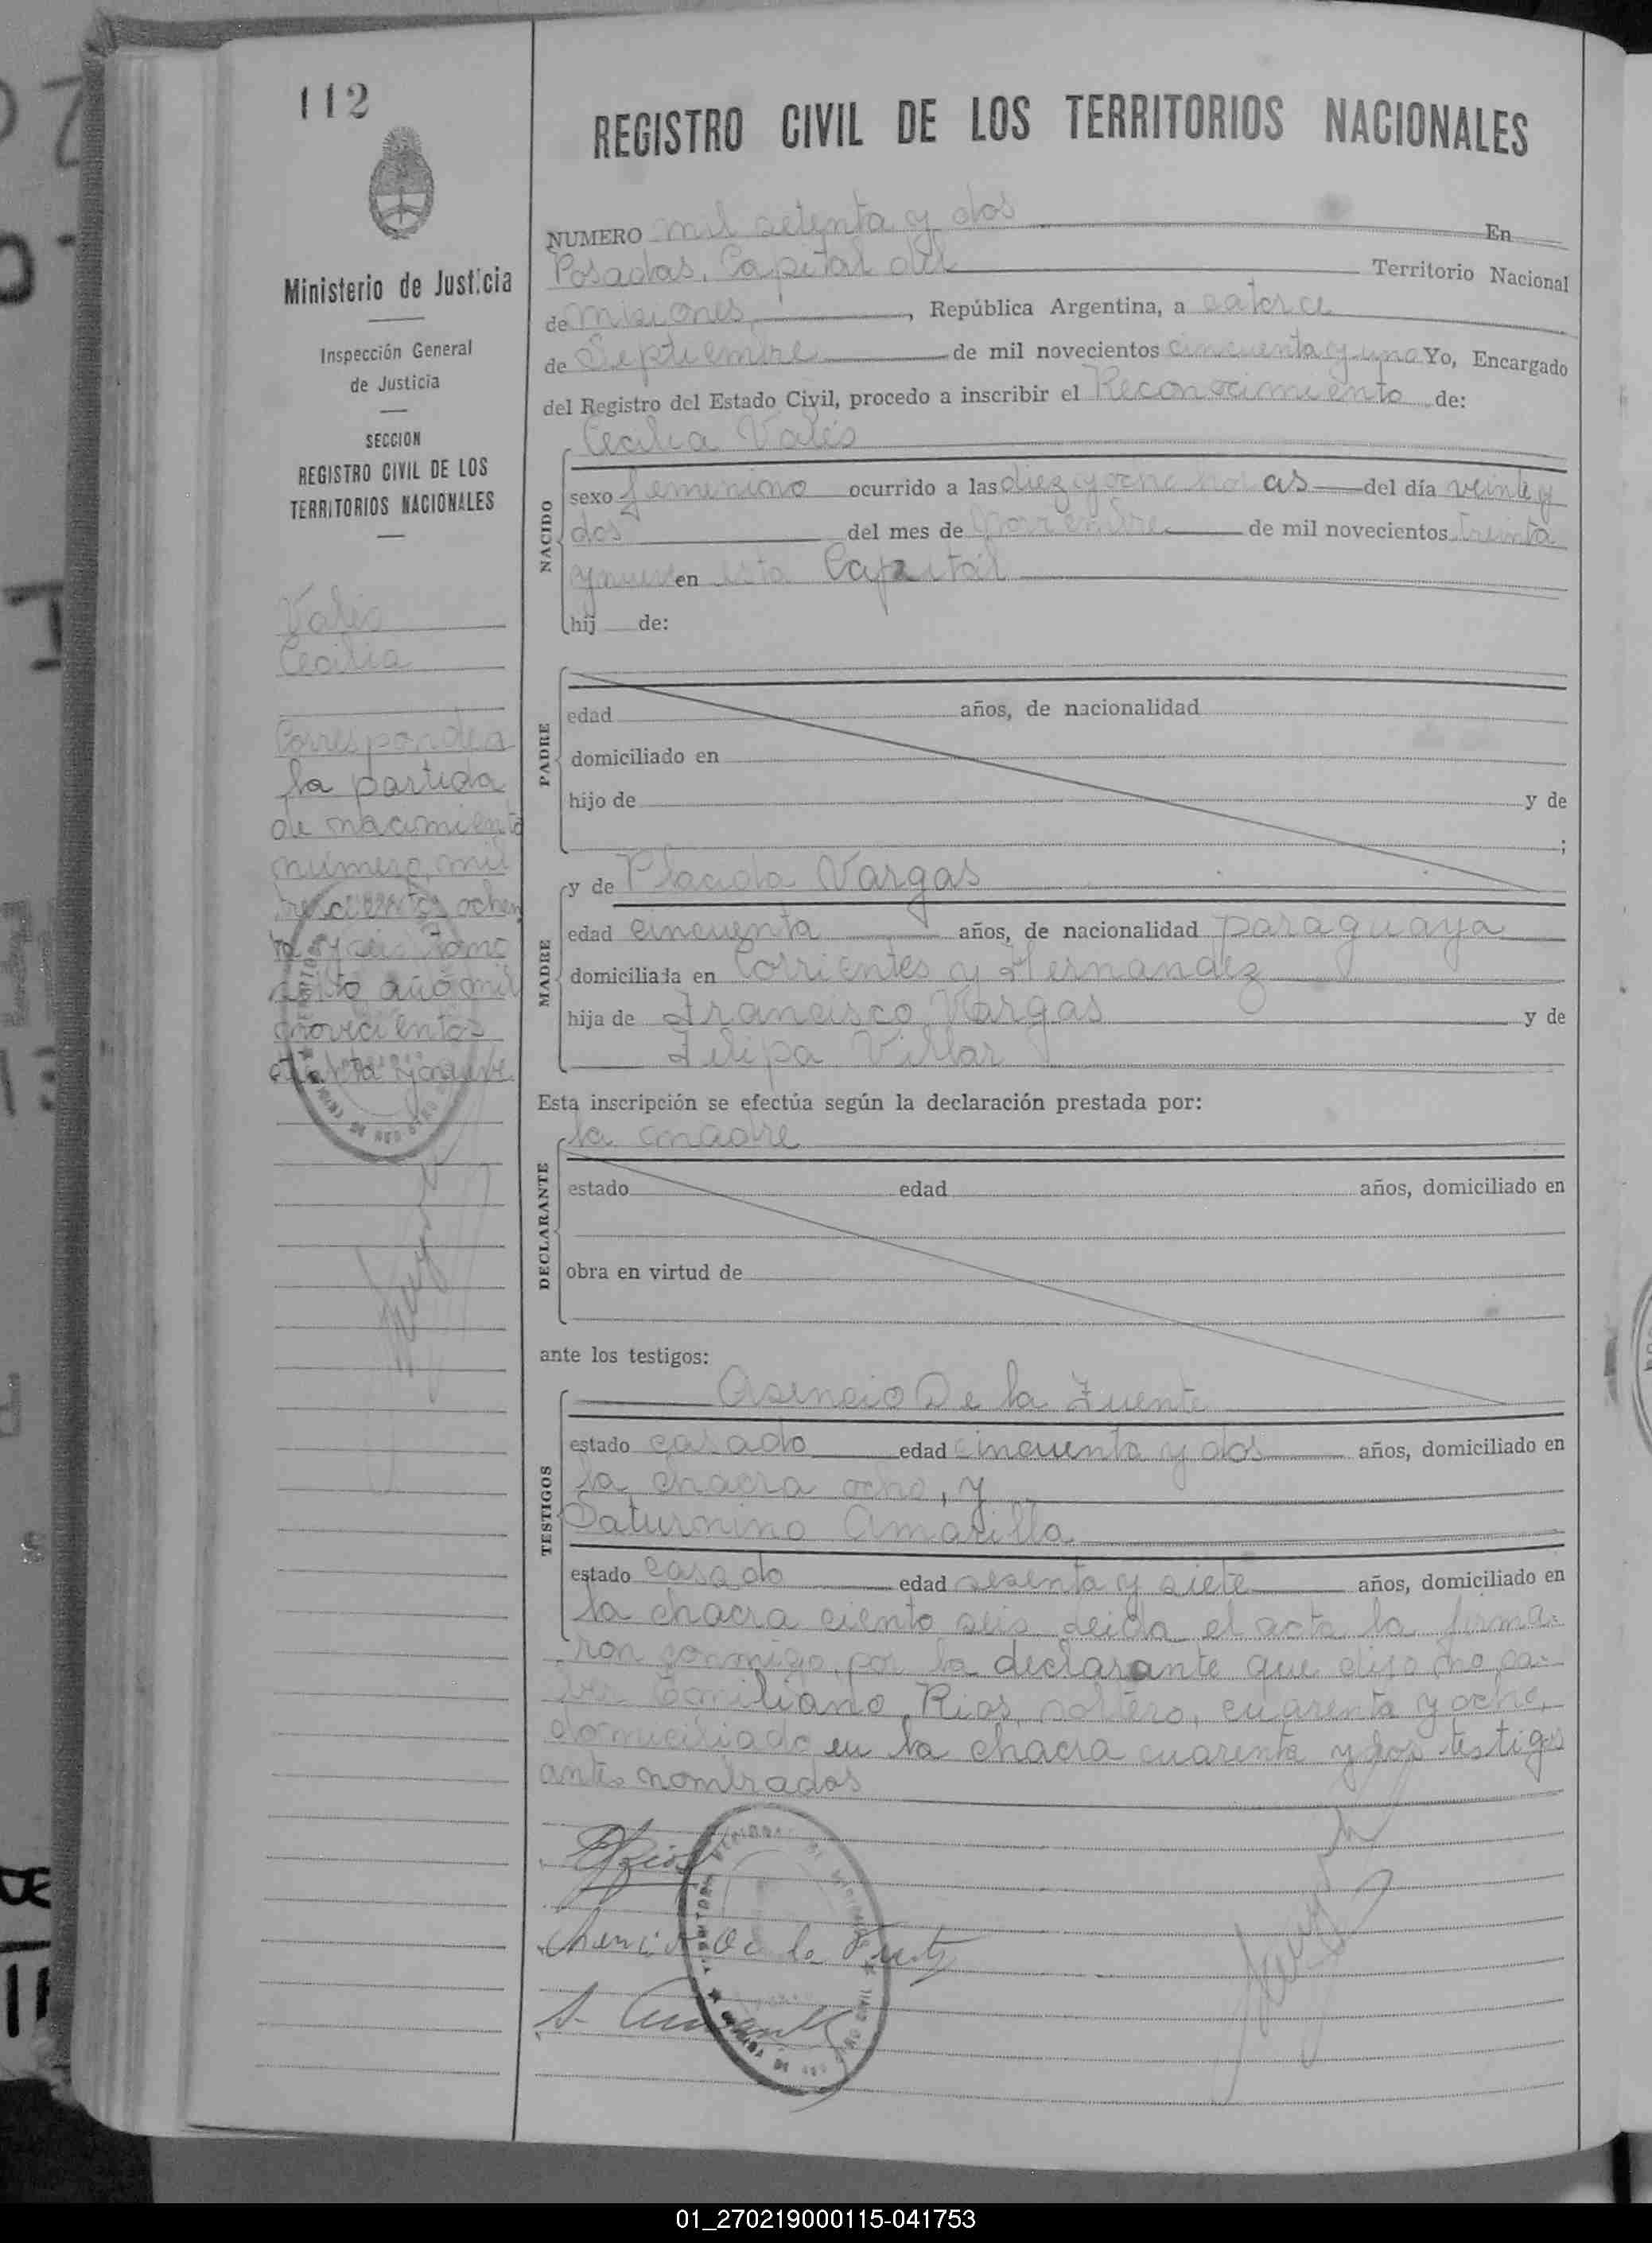 112
Ministerio de Justicia
Inspección General
de Justicia
SECCION
REGISTRO CIVIL DE LOS
TERRITORIOS NACIONALES
Valés
Cecilia
Corresponde a
la partida
de nacimiento
número mil
trescientos ochen
ta y seis tomo
año mil
novecientos
treinta y nueve
REGISTRO CIVIL DE LOS TERRITORIOS NACIONALES
NUMERO mil setenta y dos En
Posadas, Capital del Territorio Nacional
de Misiones, República Argentina, a catorce
de Septiembre de mil novecientos cincuenta y uno Yo, Encargado
del Registro del Estado Civil, procedo a inscribir el Reconocimiento de:
Cecilia Valés
NACIDO
sexo femenino ocurrido a las diez y ocho horas del día veinte y
dos del mes de Noviembre de mil novecientos treinta
y nueve en esta Capital
hij de:
PADRE
edad años, de nacionalidad
domiciliado en
hijo de y de
;
MADRE
y de Placida Vargas
edad cincuenta años, de nacionalidad paraguaya
domiciliada en Corrientes y Hernandez
hija de Francisco Vargas y de
Felipa Villar
Esta inscripción se efectúa según la declaración prestada por:
la madre
DECLARANTE
estado edad años, domiciliado en
obra en virtud de
ante los testigos:
Asencio De la Fuente
TESTIGOS
estado casado edad cincuenta y dos años, domiciliado en
la chacra ocho, y
Saturnino Amarilla
estado casado edad sesenta y siete años, domiciliado en
la chacra ciento seis. Leida el acta la firma-
ron conmigo, por la declarante que dijo no sa-
ber Emiliano Rios, soltero, cuarenta y ocho,
domiciliado en la chacra cuarenta y los testigos
antes nombrados
ERios
Asencio De la Fuente
S. Amarilla
01_270219000115-041753